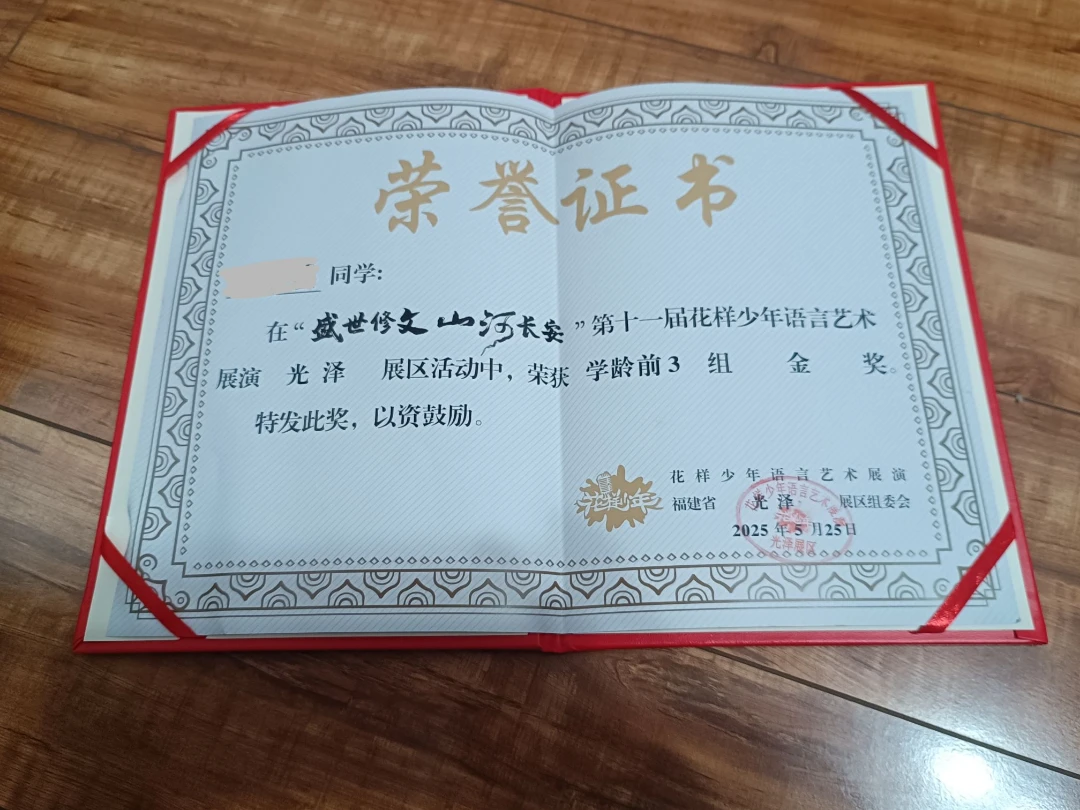 荣誉证书
同学:
在“盛世修文 山河长安”第十一届花样少年语言艺术
展演 光泽 展区活动中，荣获 学龄前3 组 金 奖。
特发此奖，以资鼓励。
花样少年
花样少年语言艺术展演
福建省 光泽 展区组委会
2025年5月25日
花样少年语言艺术展演
光泽展区